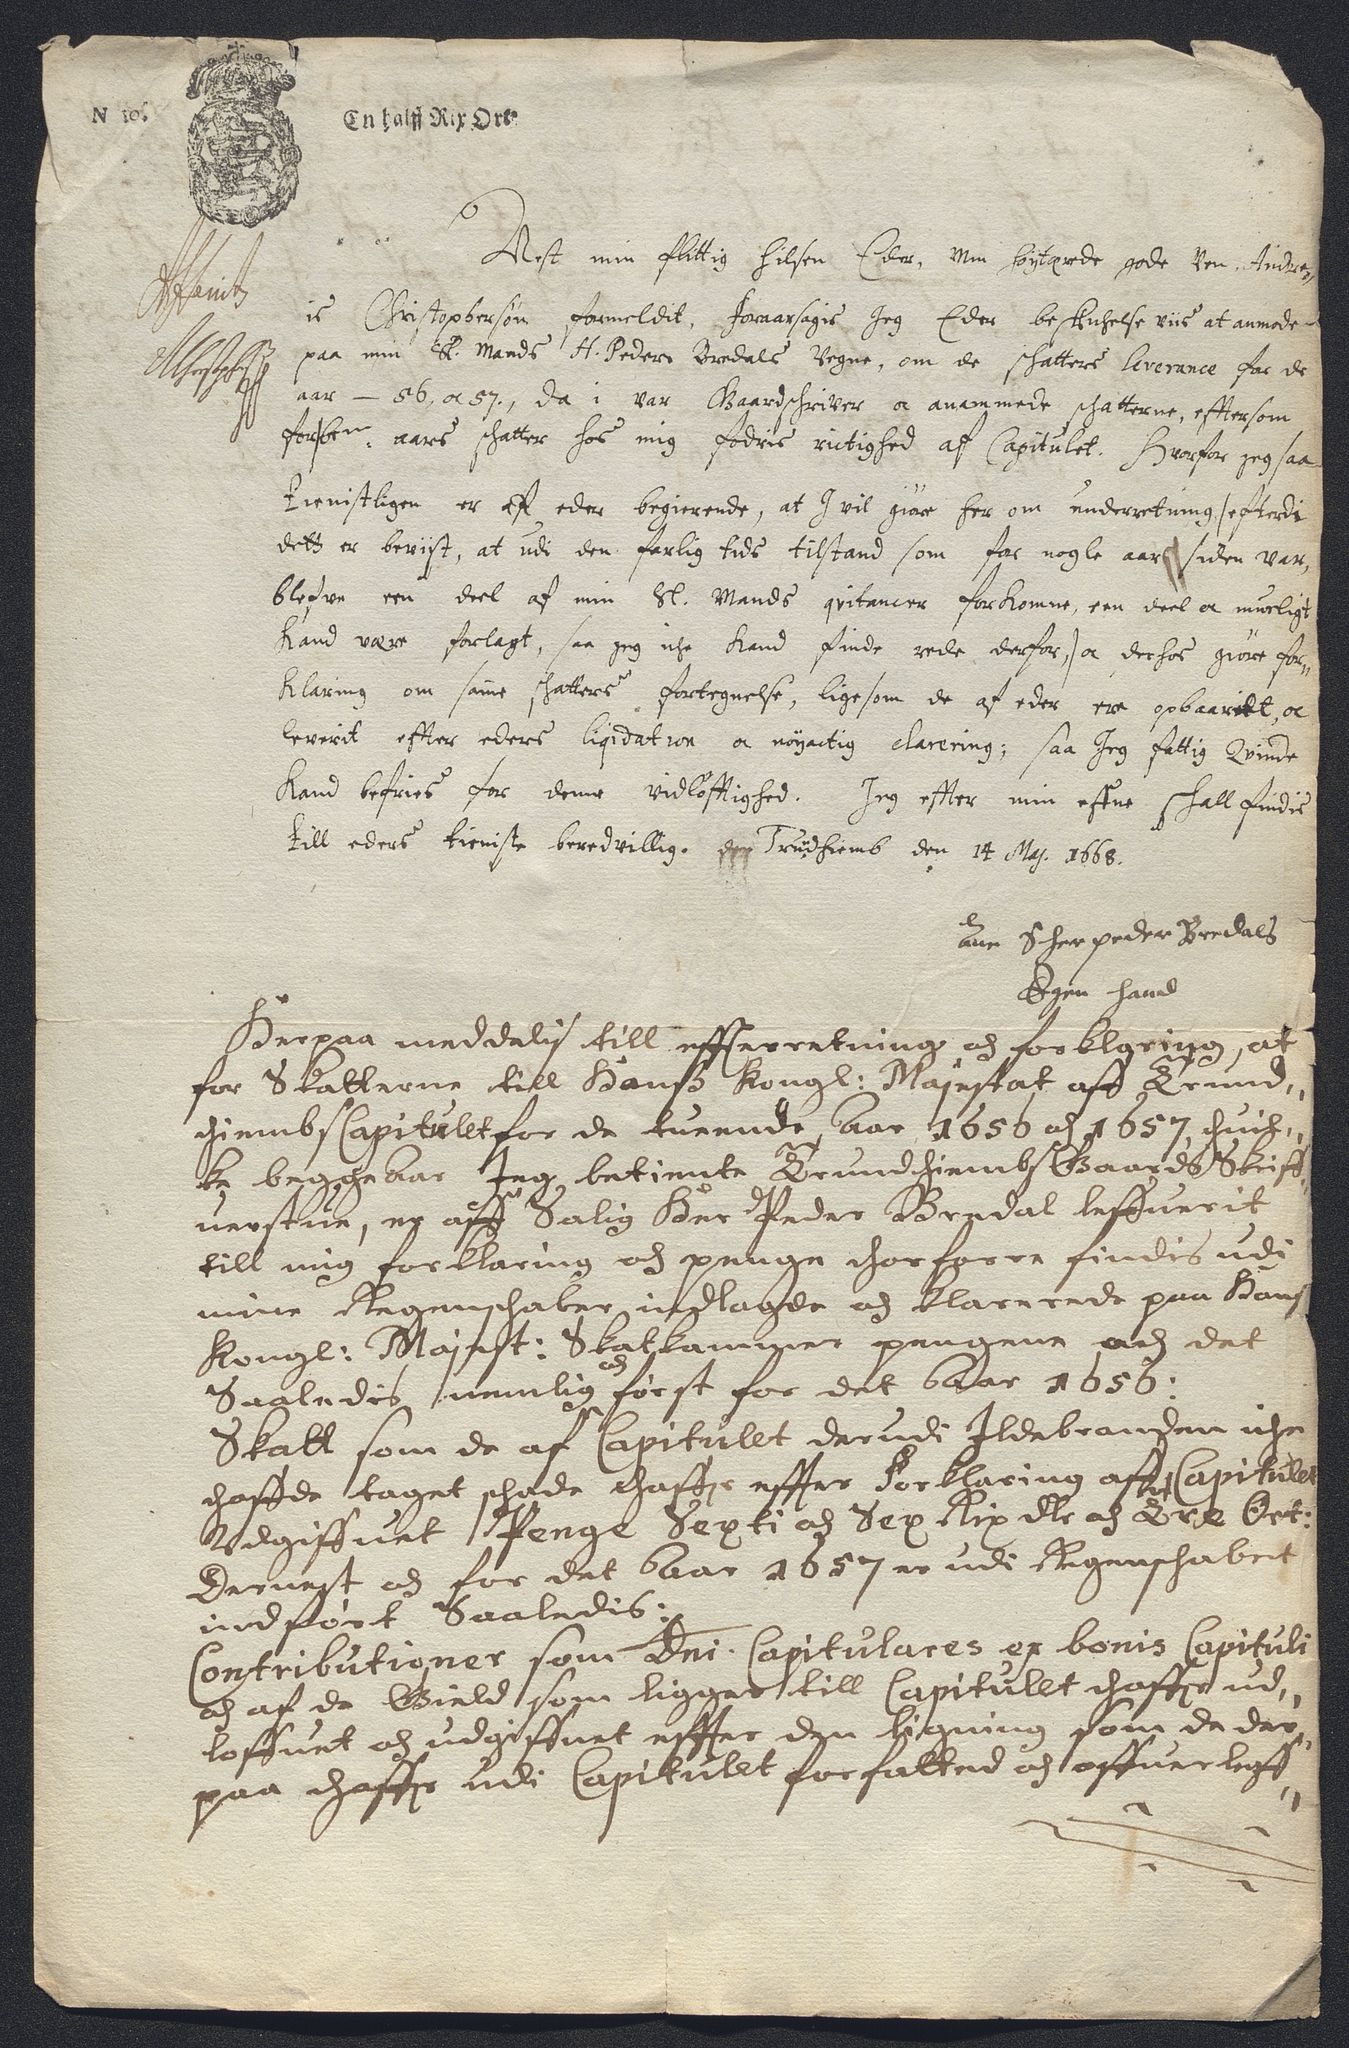 N 10.
En halff Rix Ort
Nest min flittig hilsen Eder, Min höytærede gode Ven, Andre
is Christophersøn formeldit, foraarsagis Jeg Eder beskuhelse viis at anmode
paa min Sl. Mands H. Peders Bredals Vegne, om de schatters leverance for de
aar – 56, oc 57., da i var Gaardschriver oc anammede schatterne, effterson
forsben. aars schatter hos mig fodris rictighed af Capitulet. Hvorfor jeg saa
tienistligen er af eder begierende, at I vil giøre her om underretning, /efterdi
dett er beviist, at udi den farlig tids tilstand som for nogle aar siden var,
blefve een deel af min Sl. Mands qvitancer forkomne, een deel oc mueligt
kand være forlagt, saa jeg iche kand finde rede derfor,/ oc derhos giöre for
klaring om samme schatters fortegnelse, ligesom de af eder ere opbaarett, oc
leverit effter eders liqidation oc nöyactig clarering; saa Jeg fattig Qvinde
kand befries for denne vidlöfftighed. Jeg effter min effne schall findis
till eders tieniste beredvillig. Trudhiemb den 14 Maj. 1668.
Sl her peder Bredals
Egen hand
Herpaa meddelis till effterretning och forklaring, at
for Skatterne till Hanss Kongl: Majestat aff Trund„
hiembs Capitulet for de tuende Aar 1656 och 1657 huil„
ke begge Aar Jeg betiente Trundhiembs Gaards Skriff„
uerstue, er aff Salig Her Peder Bredal leffuerit
till mig forklaring och penge horforre findis udi
mine Regenschaber indlagde och klarerede paa Hans
Kongl: Majest: Skatkammer pengene och det
Saaledis nemlig først for det Aar 1656:
Skatt som de af Capitulet derudi Ildebranden iche
haffde taget schade haffr effter Forklaring aff Capitulet
Udgiffuet Penge Sexti och Sex Rix dlr och Tre Ort:
Dernest och for det Aar 1657 er udi Regenschabet
indført Saaledis:
Contributioner som Dni. Capitulares ex bonis Capituli
och af de Gield som ligger till Capitulet haffr ud„
loffuet och udgiffuet effter den ligning som de der„
paa haffr udi Capitulet forfatted och offuerleff„